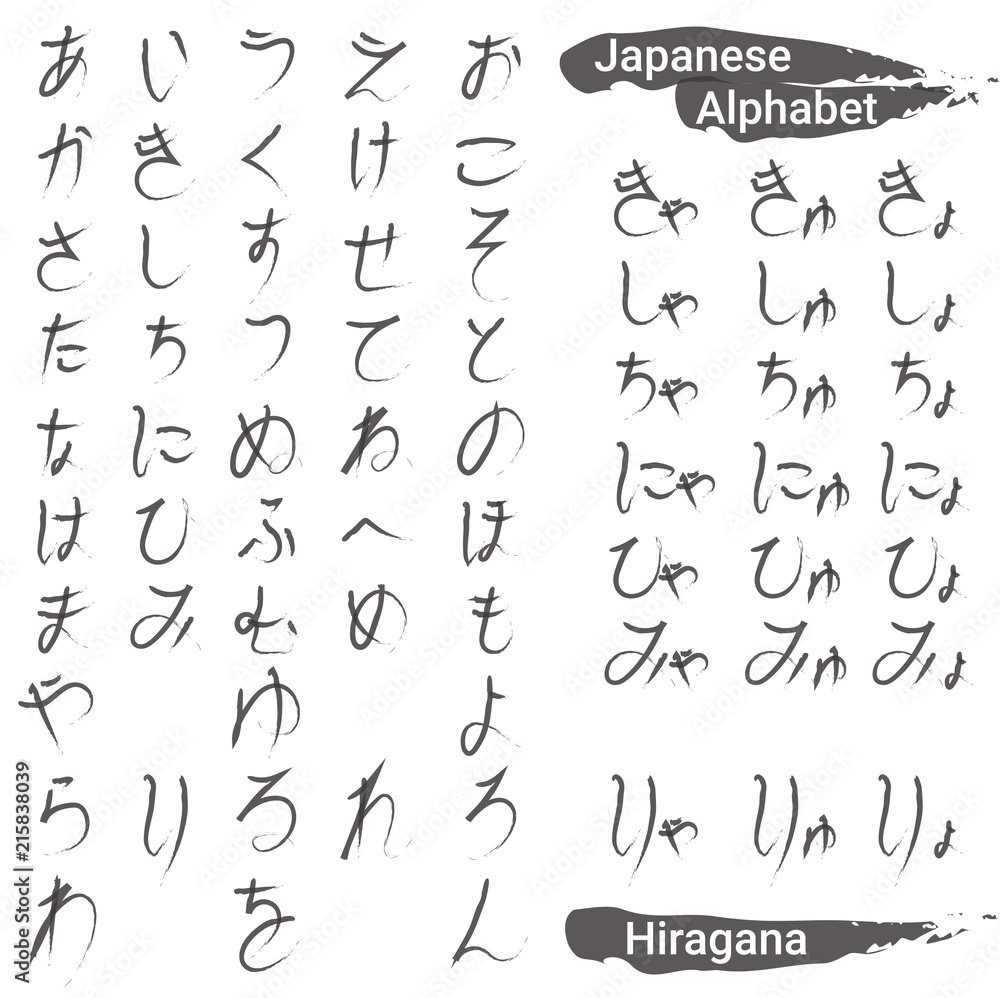 あ い う え お
か き く け こ
さ し す せ そ
た ち つ て と
な に ぬ ね の
は ひ ふ へ ほ
ま み む め も
や ゆ よ
ら り る れ ろ
わ を ん
Japanese
Alphabet
きゃ きゅ きょ
しゃ しゅ しょ
ちゃ ちゅ ちょ
にゃ にゅ にょ
ひゃ ひゅ ひょ
みゃ みゅ みょ
りゃ りゅ りょ
Hiragana
Adobe Stock | #215838039